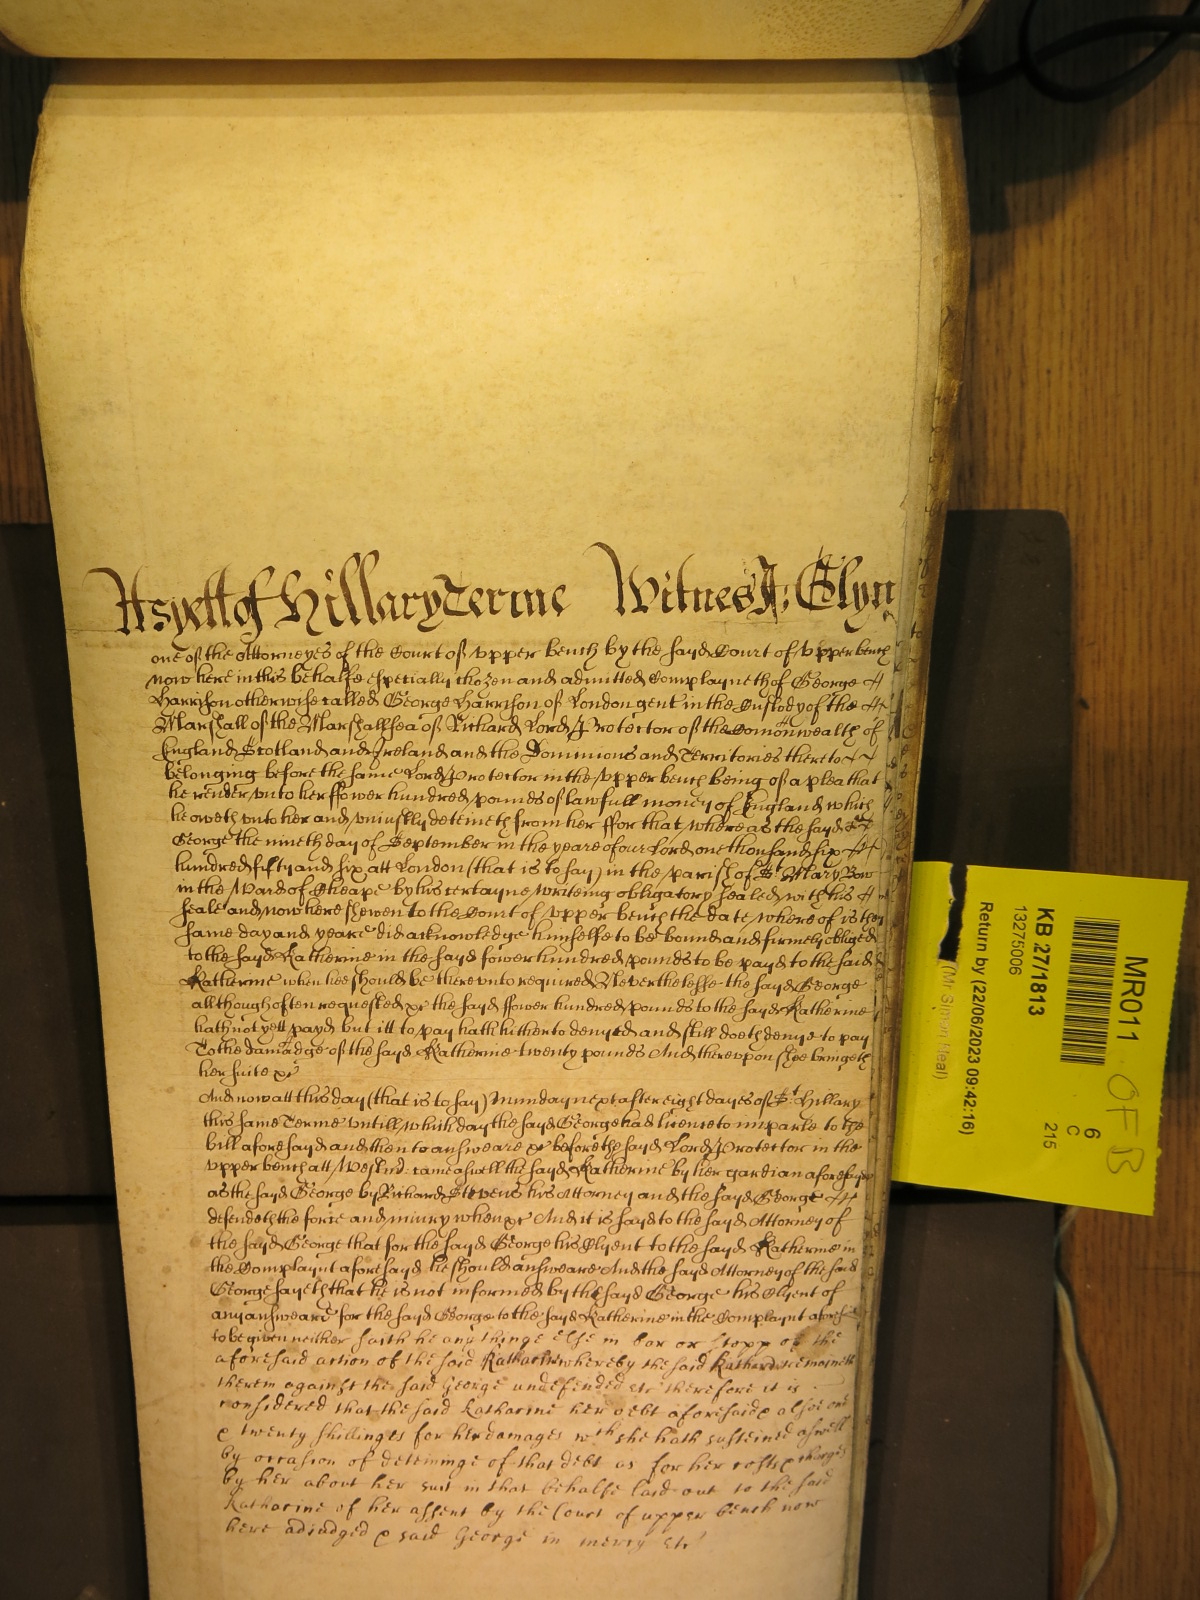 As yett of Hillary Terme Witnes J: Glyn
one of the Attorneyes of the Court of upper bench by the sayd Court of upper bench
now here in this behalfe especially chozen and admitted Complayneth of George
Harrison otherwise called George Harrison of London gent in the Custody of the
Marshall of the Marshallsea of Richard Lord Protector of the Comonwealth of
England Scotland and Ireland and the Dominions and Territories thereto
belonging before the same Lord Protector in the upper bench being of a plea that
he render unto her ffower hundred pounds of lawfull money of England which
he oweth unto her and uniustly deteineth from her ffor that whereas the sayd
George the nineth day of September in the yeare of our Lord one thousand six
hundred fifty and six att London (that is to say) in the parish of St Mary Bow
in the Ward of Cheape by his certayne writeing obligatory sealed with his
seale and now here shewen to the Court of upper bench the date whereof is the
same day and yeare did acknowledge himselfe to be bound and firmely obliged
to the sayd Katherine in the sayd fower hundred pounds to be payd to the said
Katherine when hee should be thereunto required Neverthelesse the sayd George
allthough often requested &c the sayd ffower hundred pounds to the sayd Katherine
hath not yett payd but itt to pay hath hitherto denyed and still doeth denye to pay
To the damadge of the sayd Katherine twenty pounds And thereupon shee bringeth
her suite &c
And now att this day (that is to say) Munday next after eight dayes of St Hillary
this same Terme untill which day the sayd George had licence to imparle to the
bill aforesayd and then to answeare &c before the sayd Lord Protector in the
upper bench att Westmr: came aswell the sayd Katherine by her gardian aforesayd
as the sayd George by Richard Stevens his Attorney and the sayd George
defendeth the force and iniury when &c And it is sayd to the sayd Attorney of
the sayd George that for the sayd George his Clyent to the sayd Katherine in
the Complaynt aforesayd he should answeare And the sayd Attorney of the said
George sayeth that he is not informed by the sayd George his Clyent of
any answeare for the sayd George to the sayd Katherine in the Complaynt aforesd
to be given neither saith he any thinge else in bar or stopp of the
aforesaid action of the said Katharine whereby the said Katharine remaineth
therein against the said George undefended etc therefore it is
considered that the said Katharine her debt aforesaid & alsoe
& twenty shillings for her damages wch she hath susteined aswell
by occasion of deteininge of that debt as for her costs & charges
by her about her suit in that behalfe laid out to the said
Katharine of her assent by the Court of upper bench now
here adiudged & said George in mercy etc
MR011
OF B
KB 27/1813
13275006
6
C
215
Return by (22/06/2023 09:42:16)
(Mr Simon Neal)